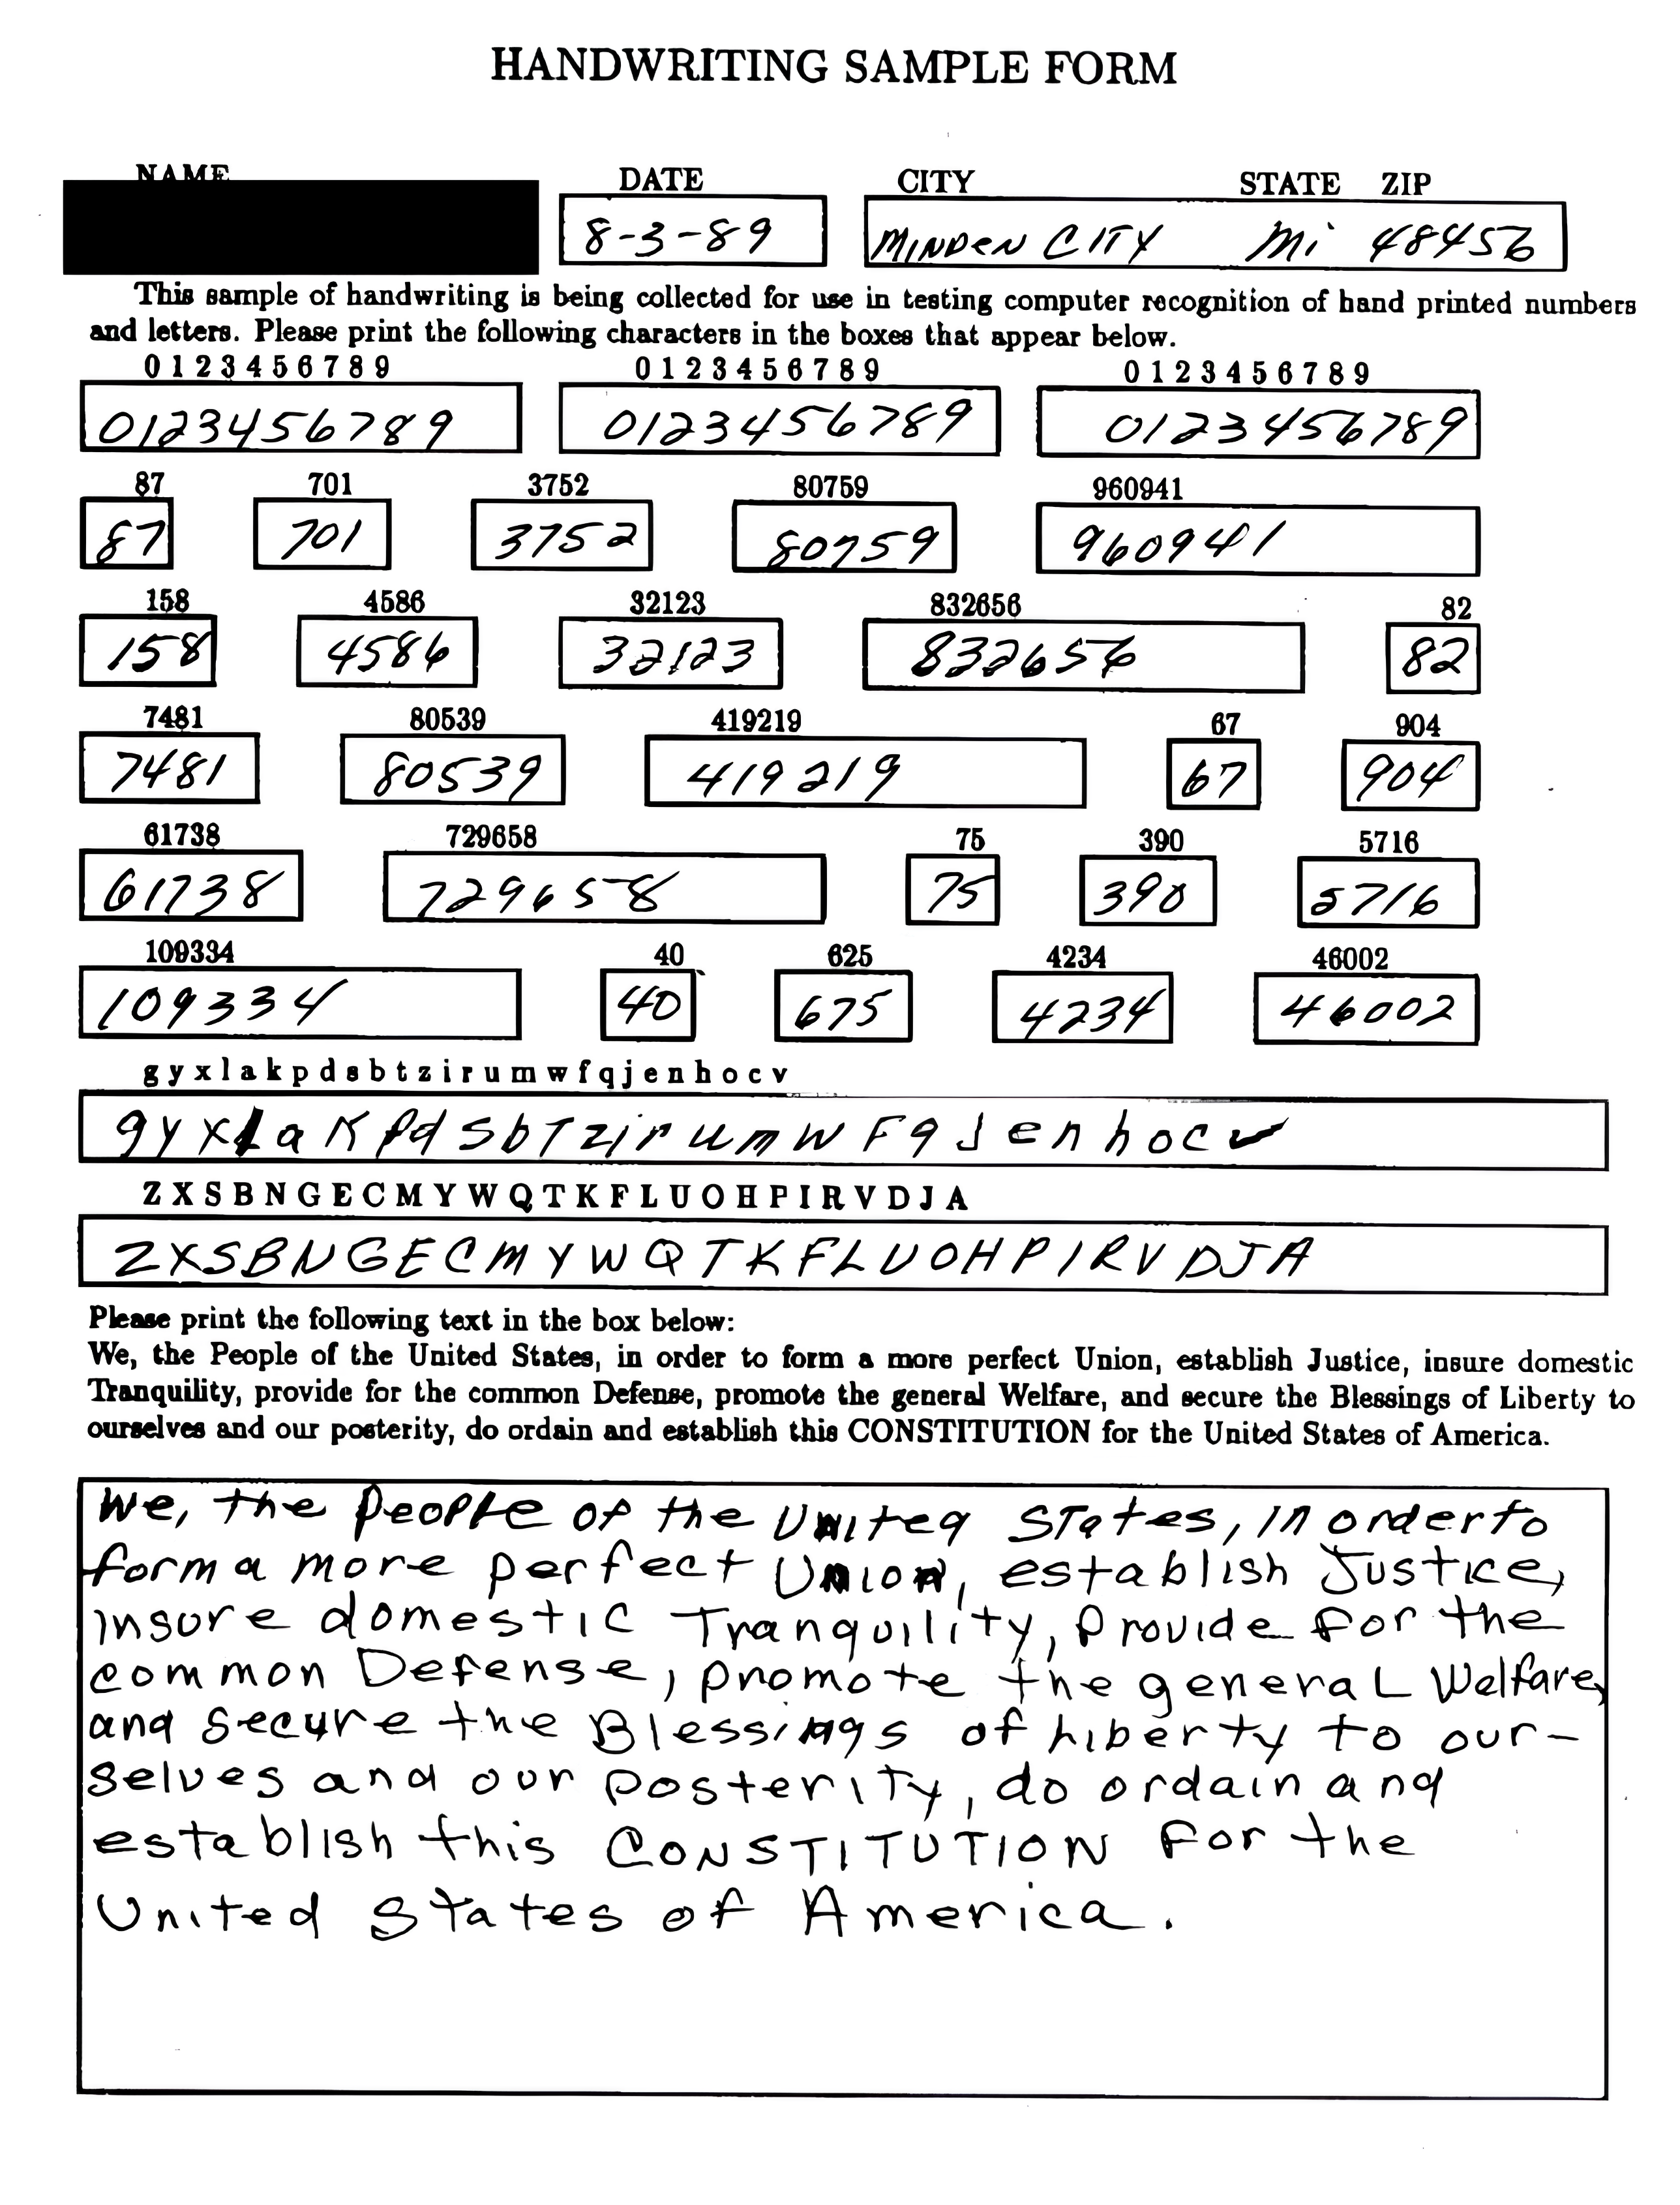 HANDWRITING SAMPLE FORM
NAME DATE CITY STATE ZIP
8-3-89 MINDEN CITY Mi 48456
This sample of handwriting is being collected for use in testing computer recognition of hand printed numbers
and letters. Please print the following characters in the boxes that appear below.
0 1 2 3 4 5 6 7 8 9 0 1 2 3 4 5 6 7 8 9 0 1 2 3 4 5 6 7 8 9
0123456789 0123456789 0123456789
87 701 3752 80759 960941
87 701 3752 80759 960941
158 4586 32123 832656 82
158 4586 32123 832656 82
7481 80539 419219 67 904
7481 80539 419219 67 904
61738 729658 75 390 5716
61738 729658 75 390 5716
109334 40 625 4234 46002
109334 40 675 4234 46002
g y x l a k p d s b t z i r u m w f q j e n h o c v
g y x L a K p d s b T z i r u m w F q J e n h o c v
Z X S B N G E C M Y W Q T K F L U O H P I R V D J A
Z X S B N G E C M Y W Q T K F L U O H P I R V D J A
Please print the following text in the box below:
We, the People of the United States, in order to form a more perfect Union, establish Justice, insure domestic
Tranquility, provide for the common Defense, promote the general Welfare, and secure the Blessings of Liberty to
ourselves and our posterity, do ordain and establish this CONSTITUTION for the United States of America.
We, the People of the United States, in order to
form a more perfect Union, establish Justice,
insure domestic Tranquility, provide for the
common Defense, promote the general Welfare,
and secure the Blessings of Liberty to our-
selves and our posterity, do ordain and
establish this CONSTITUTION for the
United States of America.